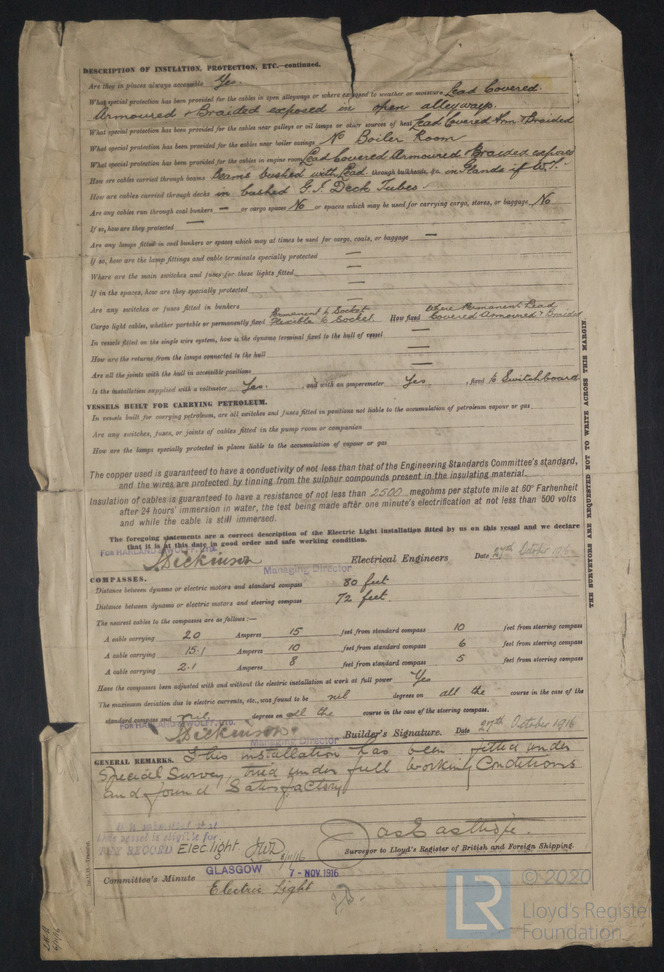 DESCRIPTION OF INSULATION, PROTECTION, ETC.—continued.
Are they in places always accessible Yes.
What special protection has been provided for the cables in open alleyways or where exposed to weather or moisture Lead Covered
Armoured & Braided exposed in open alleyways.
What special protection has been provided for the cables near galleys or oil lamps or other sources of heat Lead Covered Arm & Braided
What special protection has been provided for the cables near boiler casings No Boiler Room
What special protection has been provided for the cables in engine room Lead Covered Armoured & Braided exposed
How are cables carried through beams Beams bushed with Lead. through bulkheads, &c. in Glands if W.T.
How are cables carried through decks in bushed G.I. Deck Tubes.
Are any cables run through coal bunkers — or cargo spaces No or spaces which may be used for carrying cargo, stores, or baggage No
If so, how are they protected —
Are any lamps fitted in coal bunkers or spaces which may at times be used for cargo, coals, or baggage —
If so, how are the lamp fittings and cable terminals specially protected —
Where are the main switches and fuses for these lights fitted —
If in the spaces, how are they specially protected —
Are any switches or fuses fitted in bunkers —
Cargo light cables, whether portable or permanently fixed Permanent to Socket Flexible to Socket. How fixed Where Permanent Lead Covered Armoured & Braided
In vessels fitted on the single wire system, how is the dynamo terminal fixed to the hull of vessel —
How are the returns from the lamps connected to the hull —
Are all the joints with the hull in accessible positions —
Is the installation supplied with a voltmeter Yes. , and with an amperemeter Yes , fixed to Switchboard
VESSELS BUILT FOR CARRYING PETROLEUM.
In vessels built for carrying petroleum, are all switches and fuses fitted in positions not liable to the accumulation of petroleum vapour or gas
Are any switches, fuses, or joints of cables fitted in the pump room or companion
How are the lamps specially protected in places liable to the accumulation of vapour or gas
The copper used is guaranteed to have a conductivity of not less than that of the Engineering Standards Committee's standard,
and the wires are protected by tinning from the sulphur compounds present in the insulating material.
Insulation of cables is guaranteed to have a resistance of not less than 2500 megohms per statute mile at 60° Farhenheit
after 24 hours' immersion in water, the test being made after one minute's electrification at not less than 500 volts
and while the cable is still immersed.
The foregoing statements are a correct description of the Electric Light installation fitted by us on this vessel and we declare
that it is at this date in good order and safe working condition.
FOR HARLAND & WOLFF, LTD.
Dickinson Electrical Engineers Date 27th October 1916
Managing Director
COMPASSES.
Distance between dynamo or electric motors and standard compass 80 feet
Distance between dynamo or electric motors and steering compass 72 feet.
The nearest cables to the compasses are as follows:—
A cable carrying 20 Amperes 15 feet from standard compass 10 feet from steering compass
A cable carrying 15.1 Amperes 10 feet from standard compass 6 feet from steering compass
A cable carrying 2.1 Amperes 8 feet from standard compass 5 feet from steering compass
Have the compasses been adjusted with and without the electric installation at work at full power Yes
The maximum deviation due to electric currents, etc., was found to be nil degrees on all the course in the case of the
standard compass and nil degrees on all the course in the case of the steering compass.
FOR HARLAND & WOLFF, LTD.
Dickinson. Builder's Signature. Date 27th October 1916
Managing Director
GENERAL REMARKS. This installation has been fitted under
Special Survey, tried under full Working Conditions
and found Satisfactory
It is submitted that
this vessel is eligible for
THE RECORD Elec. light JWD 8/11/16
Surveyor to Lloyd's Register of British and Foreign Shipping.
Committee's Minute GLASGOW 7 - NOV. 1916
Electric Light
THE SURVEYORS ARE REQUESTED NOT TO WRITE ACROSS THIS MARGIN
LR
© 2020
Lloyd's Register
Foundation